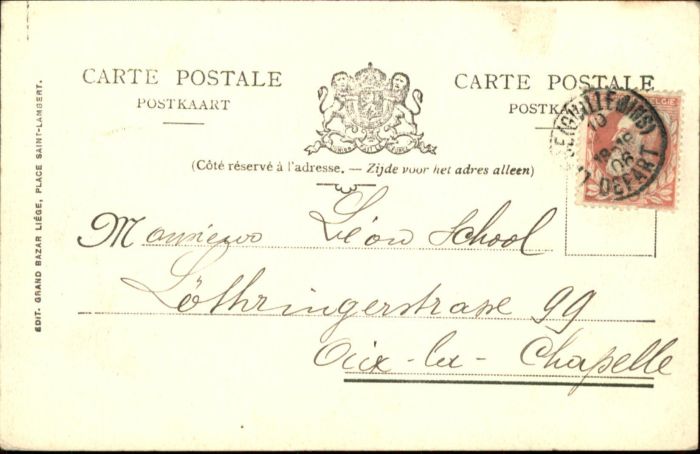 CARTE POSTALE
POSTKAART
CARTE POSTALE
POSTKAART
(Côté réservé à l'adresse. — Zijde voor het adres alleen)
DEPART
Monsieur Léon School
Löthringerstrasse 99
Aix-la-Chapelle
EDIT. GRAND BAZAR LIÉGE, PLACE SAINT-LAMBERT.